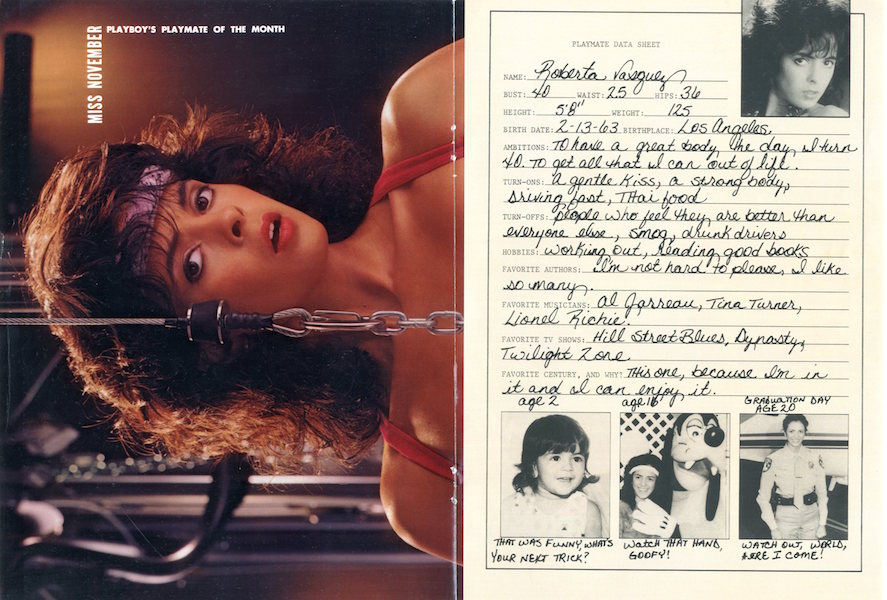 MISS NOVEMBER
PLAYBOY'S PLAYMATE OF THE MONTH
PLAYMATE DATA SHEET
NAME: Roberta Vasquez
BUST: 40 WAIST: 25 HIPS: 36
HEIGHT: 5'8" WEIGHT: 125
BIRTH DATE: 2-13-63 BIRTHPLACE: Los Angeles,
AMBITIONS: To have a great body the day I turn
40. To get all that I can out of life.
TURN-ONS: A gentle kiss, a strong body,
driving fast, Thai food
TURN-OFFS: people who feel they are better than
everyone else, smog, drunk drivers
HOBBIES: working out, reading good books
FAVORITE AUTHORS: I'm not hard to please, I like
so many.
FAVORITE MUSICIANS: Al Jarreau, Tina Turner,
Lionel Richie.
FAVORITE TV SHOWS: Hill Street Blues, Dynasty,
Twilight Zone
FAVORITE CENTURY, AND WHY? This one, because I'm in
it and I can enjoy it.
age 2
age 16
GRADUATION DAY
AGE 20
THAT WAS FUNNY, WHAT'S
YOUR NEXT TRICK?
WATCH THAT HAND,
GOOFY!
WATCH OUT, WORLD,
HERE I COME!